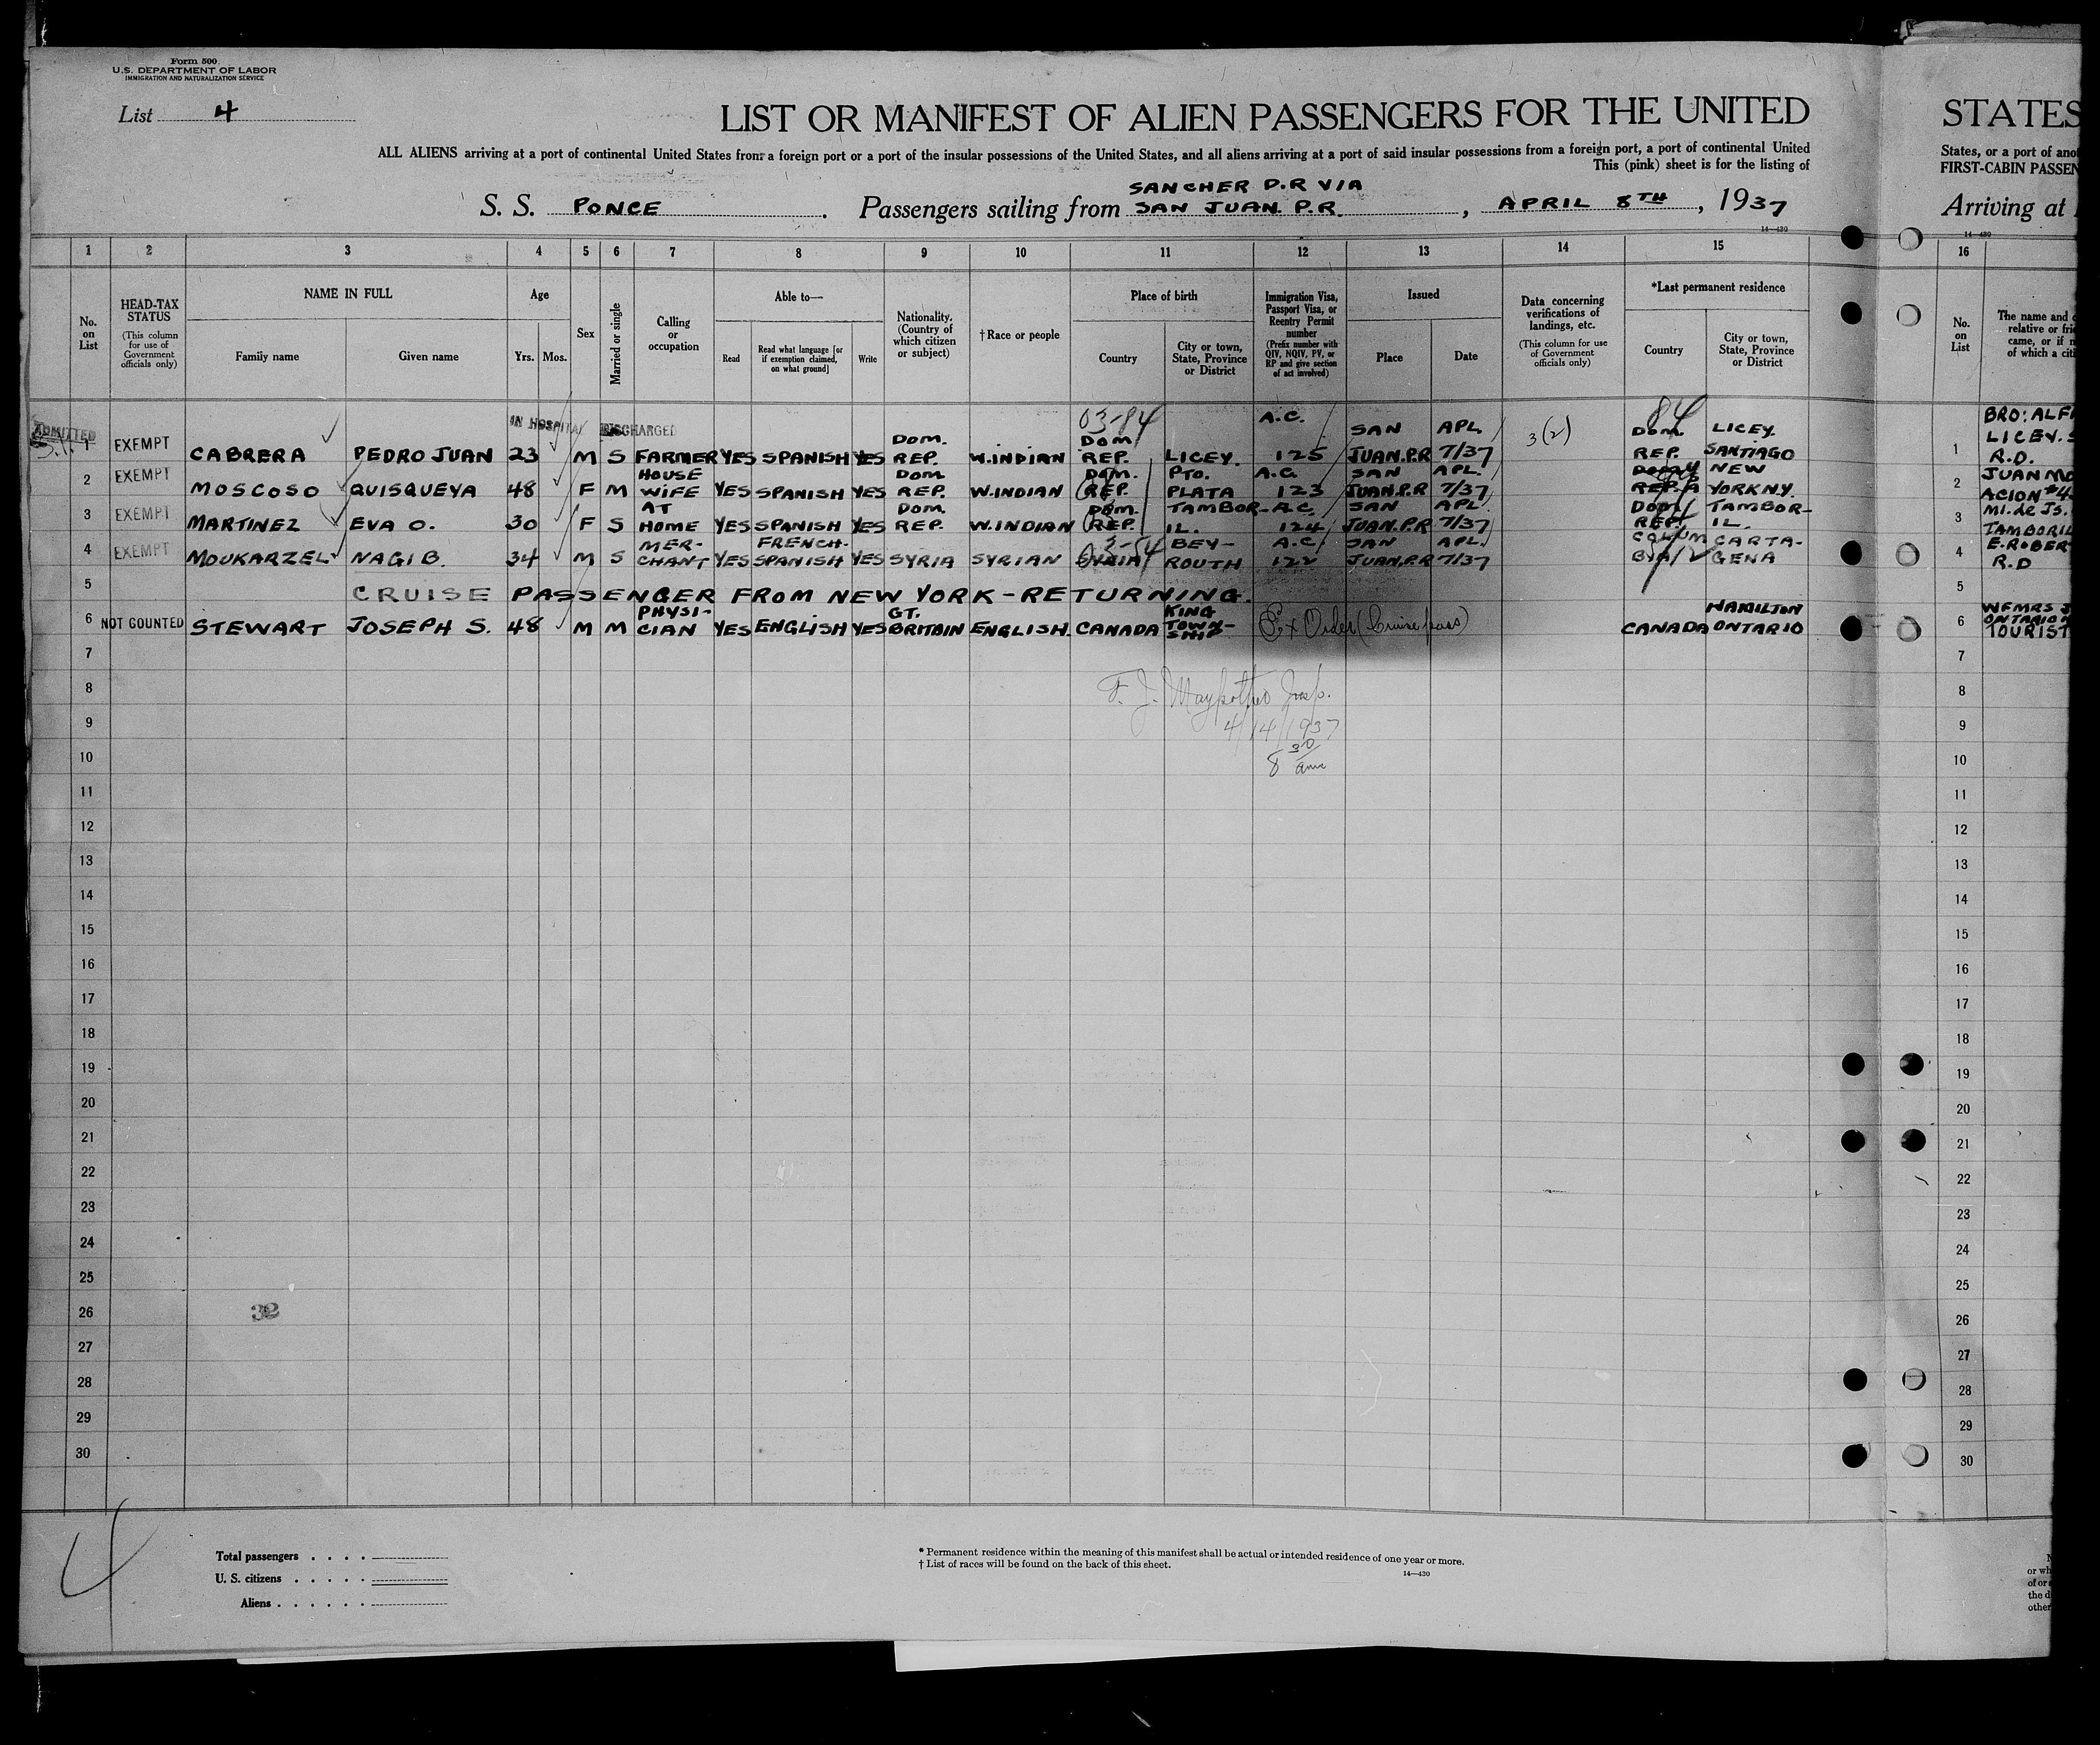 Form 500
U.S. DEPARTMENT OF LABOR
IMMIGRATION AND NATURALIZATION SERVICE
List 4
LIST OR MANIFEST OF ALIEN PASSENGERS FOR THE UNITED
STATES
ALL ALIENS arriving at a port of continental United States from a foreign port or a port of the insular possessions of the United States, and all aliens arriving at a port of said insular possessions from a foreign port, a port of continental United
States, or a port of
This (pink) sheet is for the listing of
FIRST-CABIN PASSEN
SANCHER D.R VIA
S. S. PONCE. Passengers sailing from SAN JUAN. P.R., APRIL 8TH, 1937
Arriving at
14-430
14-430
1 2 3 4 5 6 7 8 9 10 11 12 13 14 15 16
No. on List
HEAD-TAX STATUS (This column for use of Government officials only)
NAME IN FULL
Family name Given name
Age
Yrs. Mos.
Sex
Married or single
Calling or occupation
Able to—
Read
Read what language [or if exemption claimed, on what ground]
Write
Nationality. (Country of which citizen or subject)
†Race or people
Place of birth
Country
City or town, State, Province or District
Immigration Visa, Passport Visa, or Reentry Permit number (Prefix number with QIV, NQIV, PV, or RP and give section of act involved)
Issued
Place Date
Data concerning verifications of landings, etc. (This column for use of Government officials only)
*Last permanent residence
Country
City or town, State, Province or District
No. on List
The name and
relative or
came, or if
of which a
ADMITTED IN HOSPITAL DISCHARGED 03-84 84
1 EXEMPT CABRERA PEDRO JUAN 23 M S FARMER YES SPANISH YES DOM. REP. W.INDIAN DOM REP. LICEY. A.C. 125 SAN JUAN.P.R APL 7/37 3(2) DOM. REP. LICEY. SANTIAGO 1 BRO: LICEY. R.D.
2 EXEMPT MOSCOSO QUISQUEYA 48 F M HOUSE WIFE YES SPANISH YES DOM REP. W.INDIAN DOM. REP. PTO. PLATA A.C. 123 SAN JUAN.P.R APL. 7/37 NEW YORK N.Y. 2 JUAN
3 EXEMPT MARTINEZ EVA O. 30 F S AT HOME YES SPANISH YES DOM. REP. W.INDIAN DOM. REP. TAMBOR-IL. A.C. 124 SAN JUAN.P.R APL. 7/37 DOM. REP. TAMBOR-IL. 3
4 EXEMPT MOUKARZEL NAGIB. 34 M S MER-CHANT YES FRENCH-SPANISH YES SYRIA SYRIAN SYRIA BEY-ROUTH A.C. 122 SAN JUAN.P.R APL. 7/37 COLUM BYA CARTA-GENA 4 R.D
5 CRUISE PASSENGER FROM NEW YORK-RETURNING. 5
6 NOT COUNTED STEWART JOSEPH S. 48 M M PHYSI-CIAN YES ENGLISH YES GT. BRITAIN ENGLISH. CANADA KING TOWN-SHIP Ex Order (Cruise pass) CANADA HAMILTON ONTARIO 6 ONTARIO TOURIST
7 7
8 F. J. Insp. 8
9 4/14/1937 9
10 8 30 am 10
11 11
12 12
13 13
14 14
15 15
16 16
17 17
18 18
19 19
20 20
21 21
22 22
23 23
24 24
25 25
26 32 26
27 27
28 28
29 29
30 30
4
Total passengers
U. S. citizens
Aliens
* Permanent residence within the meaning of this manifest shall be actual or intended residence of one year or more.
† List of races will be found on the back of this sheet.
14—430